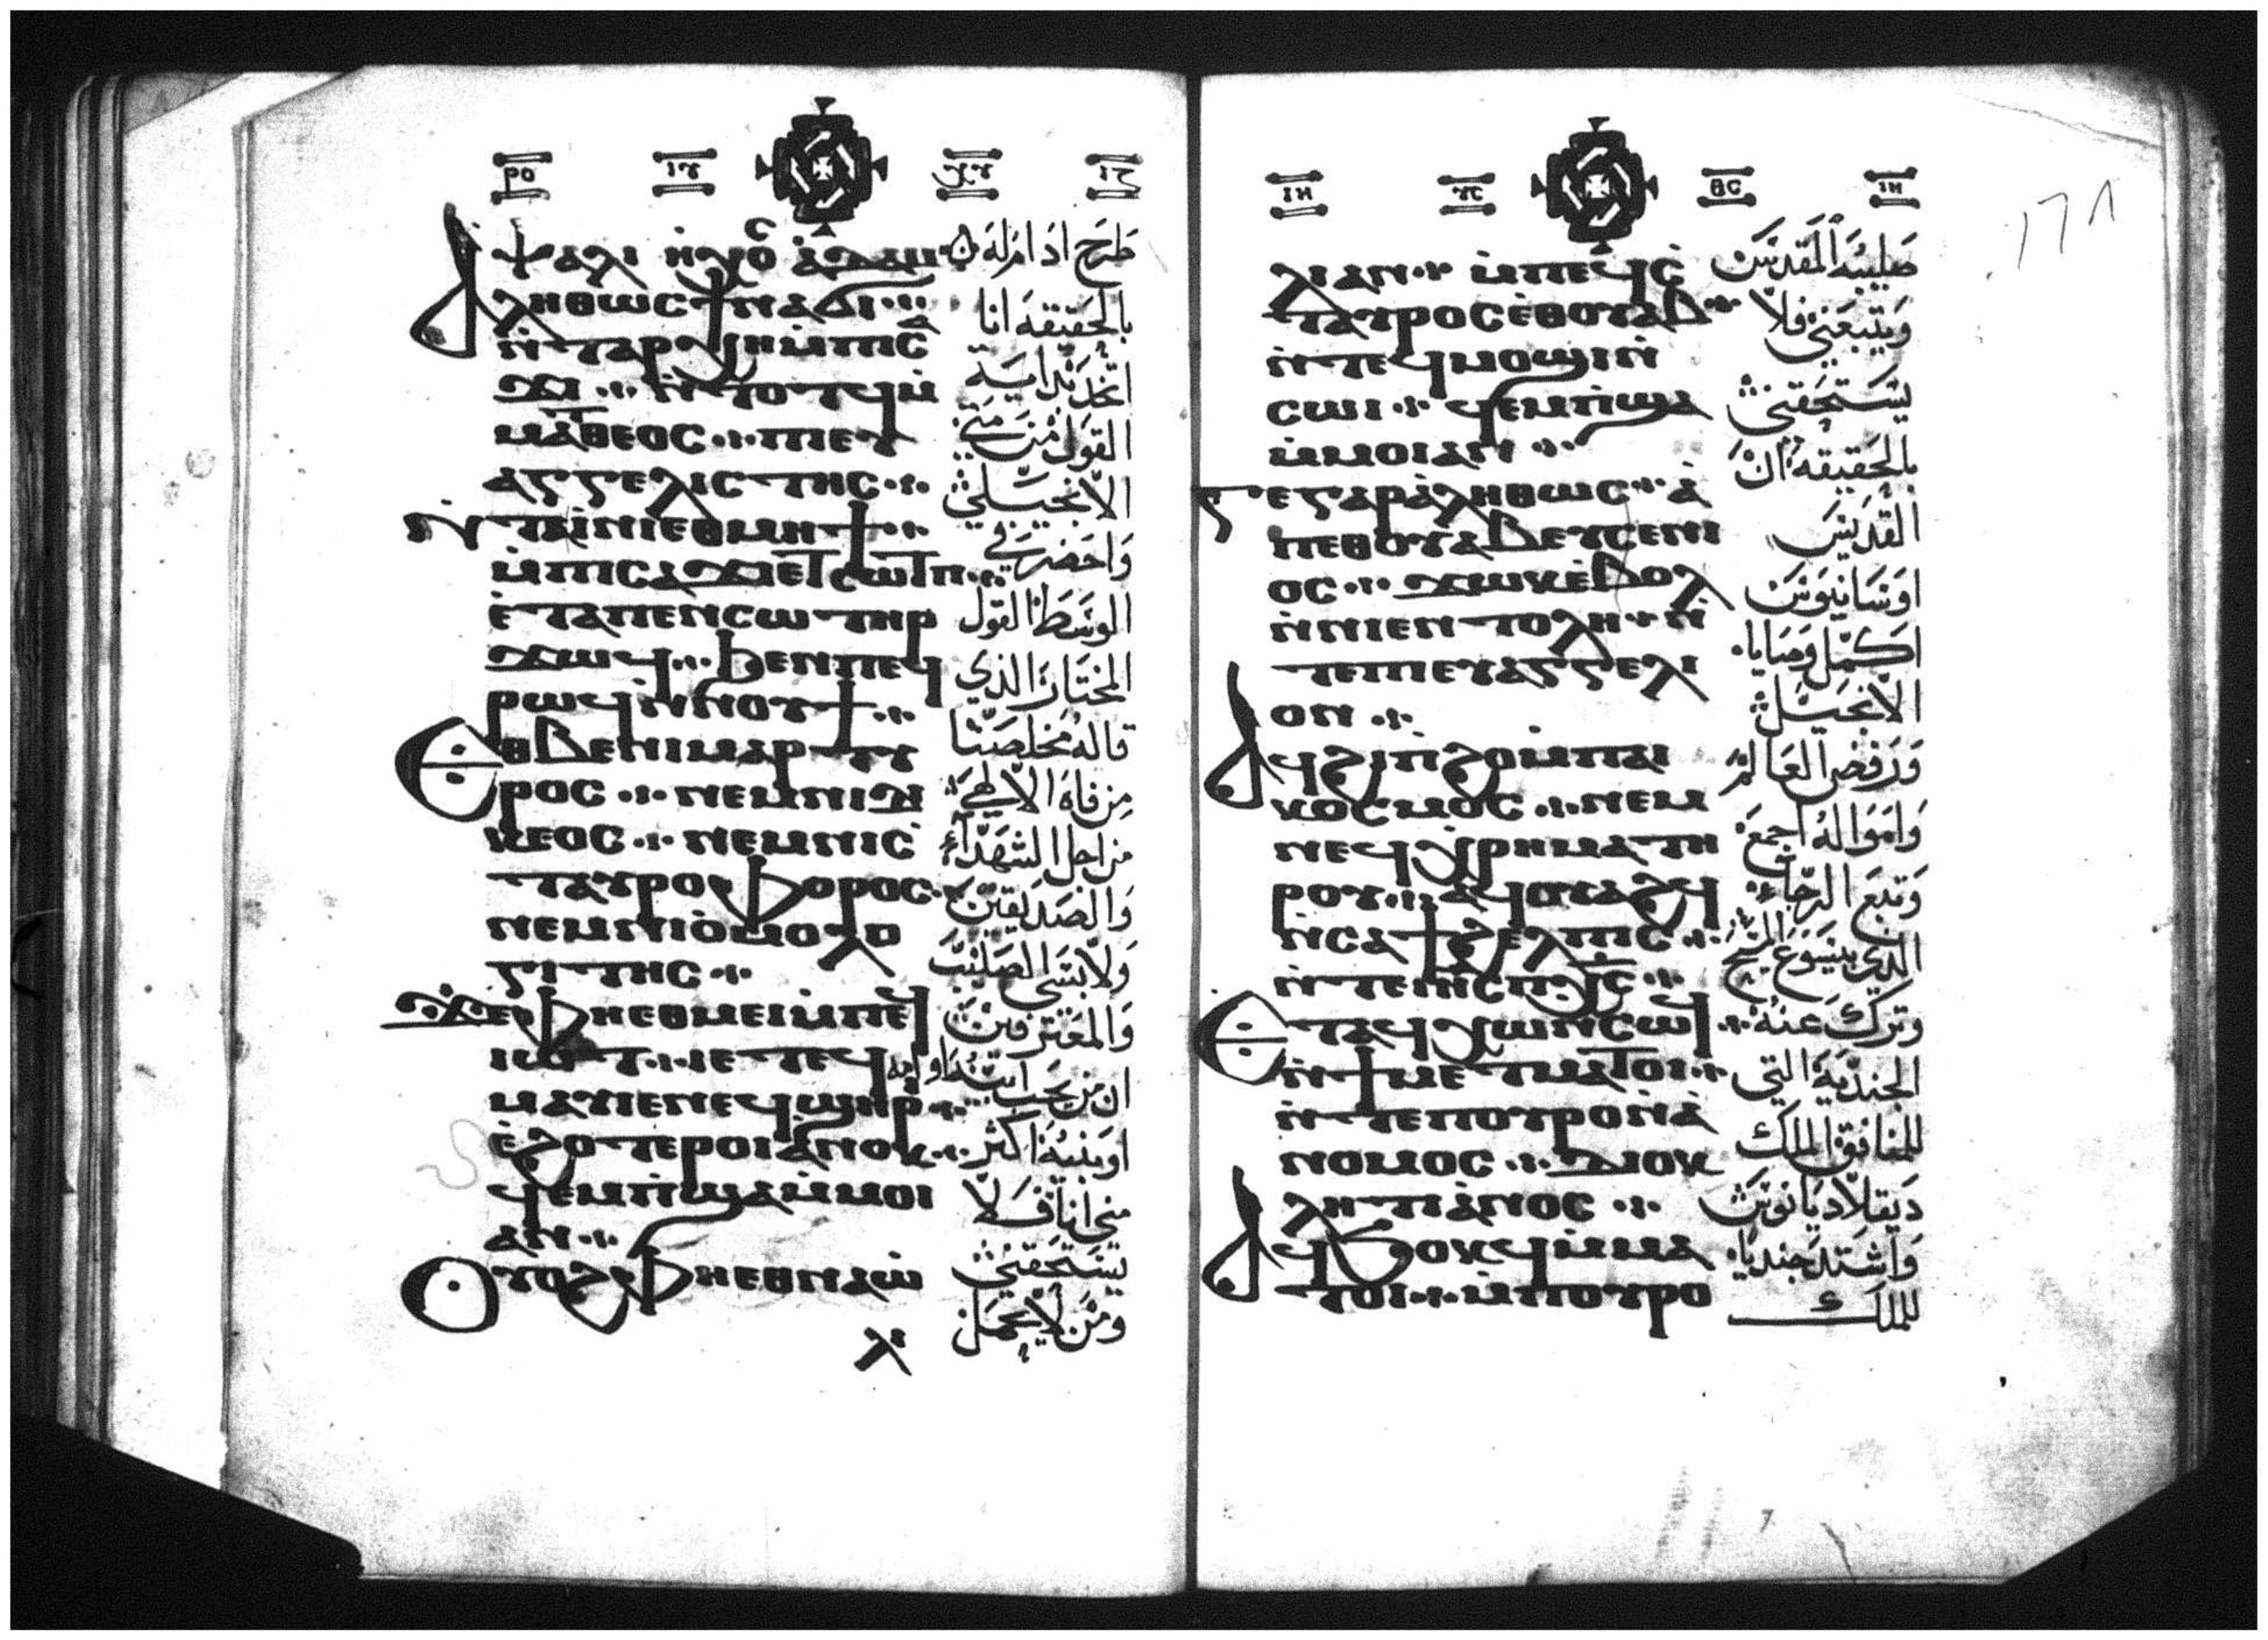 ⲣⲟ ⲓⲩ ⲭⲩ ⲓⲏ
ⲯⲁⲗⲓ ⲛ̀ⲭⲟ̅ⲥ ⲁ̀ⲇⲁⲙ
ⲁⲗⲏⲑⲱⲥ ϯⲛⲁϭⲓ
ⲛ̀ⲧⲁⲣⲭⲏ ⲙ̀ⲡⲓⲥ
ⲁϫⲓ ⲛ̀ⲧⲟⲧϥ ⲙ̀
ⲙⲁⲧⲑⲉⲟⲥ ⲡⲓⲉⲩ
ⲁⲅⲅⲉⲗⲓⲥⲧⲏⲥ
ⲛ̀ⲧⲁⲓ̀ⲛⲓ ⲉⲑⲙⲏϯ
ⲙ̀ⲡⲓⲥⲁϫⲓ ⲉⲧⲥⲱⲧⲡ
ⲉ̀ⲧⲁ ⲡⲉⲛⲥⲱⲧⲏⲣ
ϫⲱϥ ϧⲉⲛ ⲡⲉϥ
ⲣⲱϥ ⲛ̀ⲛⲟⲩϯ
ⲉⲑⲃⲉ ⲛⲓⲙⲁⲣⲧⲩ
ⲣⲟⲥ ⲛⲉⲙ ⲛⲓⲇⲓ
ⲕⲉⲟⲥ ⲛⲉⲙ ⲛⲓⲥ̀
ⲧⲁⲩⲣⲟⲫⲟⲣⲟⲥ
ⲛⲉⲙ ⲛⲓⲟ̀ⲙⲟⲗⲟ
ⲅⲓⲧⲏⲥ
ϫⲉ ⲫⲏⲉⲑⲙⲉⲓ ⲙ̀ⲡⲉϥ
ⲓⲱⲧ ⲓⲉ ⲧⲉϥ
ⲙⲁⲩ ⲓⲉ ⲛⲉϥϣⲏⲣⲓ
ⲉ̀ϩⲟⲧⲉⲣⲟⲓ ⲁ̀ⲛⲟⲕ
ϥⲉⲙⲡ̀ϣⲁ ⲙ̀ⲙⲟⲓ
ⲁⲛ
ⲟⲩⲟϩ ⲫⲏⲉⲑⲛⲁⲱ̀
ⲗⲓ
طرح ادام له
بالحقيقة انا
اتخذ بداية
القول من متى
الانجيلي
واحضر في
الوسط القول
المختار الذي
قاله مخلصنا
من فاه الالهي
من اجل الشهداء
والصديقين
ولابسي الصليب
والمعترفين
ان من يحب ابيه او امه
او بنيه اكثر
مني انا فلا
يستحقني
ومن لا يحمل
ⲓⲏ ⲩⲥ ⲑⲥ ⲓⲏ
ⲗⲓ ⲁⲛ ⲙ̀ⲡⲉϥⲥ̀
ⲧⲁⲩⲣⲟⲥ ⲉ̀ⲑⲟⲩⲁⲃ
ⲛ̀ⲧⲉϥⲙⲟϣⲓ ⲛ̀
ⲥⲱⲓ ϥⲉⲙⲡ̀ϣⲁ
ⲙ̀ⲙⲟⲓ ⲁⲛ
ⲅⲉ ⲅⲁⲣ ⲁ̀ⲗⲏⲑⲱⲥ ⲁ̀
ⲡⲉⲑⲟⲩⲁⲃ ⲉⲩⲥⲉⲛⲓ
ⲟⲥ ϫⲱⲕ ⲉ̀ⲃⲟⲗ
ⲛ̀ⲛⲓⲉⲛⲧⲟⲗⲏ ⲛ̀
ⲧⲉ ⲡⲓⲉⲩⲁⲅⲅⲉⲗⲓ
ⲟⲛ
ⲁϥϩⲓⲡ̀ϩⲟ ⲙ̀ⲡⲁⲓ
ⲕⲟⲥⲙⲟⲥ ⲛⲉⲙ
ⲛⲉϥⲭⲣⲏⲙⲁ ⲧⲏ
ⲣⲟⲩ ⲁϥⲟⲩⲁϩϥ
ⲛ̀ⲥⲁ ϯϩⲉⲗⲡⲓⲥ
ⲛ̀ⲧⲉ ⲓⲏⲥ ⲡⲭⲥ
ⲉⲧⲁϥⲭⲱ ⲛ̀ⲥⲱϥ
ⲛ̀ϯⲙⲉⲧⲙⲁⲧⲟⲓ
ⲛ̀ⲧⲉ ⲡⲟⲩⲣⲟ ⲛ̀ⲁ̀
ⲛⲟⲙⲟⲥ ⲇⲓⲟⲕ
ⲗⲏⲧⲓⲁ̀ⲛⲟⲥ
ⲁϥϭⲟⲕϥ ⲙ̀ⲙⲁ
ⲧⲟⲓ ⲙ̀ⲡⲟⲩⲣⲟ
صليبه المقدس
ويتبعني فلا
يستحقني
بالحقيقة ان
القديس
اوسانيوس
اكمل وصايا
الانجيل
ورفض العالم
وامواله اجمع
وتبع الرجاء
الذي ليسوع المسيح
وترك عنه
الجندية التي
للمنافق الملك
ديقلاديانوس
واشتد جنديا
للملك
١٦٨